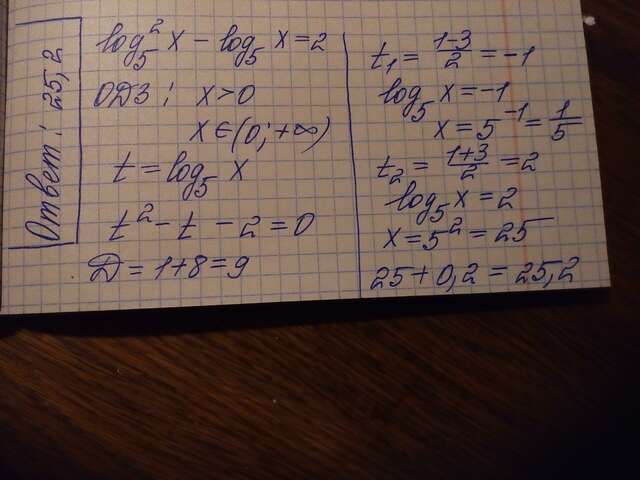 log₅² x − log₅ x = 2
ОДЗ: x > 0
x ∈ (0; +∞)
t = log₅ x
t² − t − 2 = 0
D = 1 + 8 = 9
t₁ = (1−3)/2 = −1
log₅ x = −1
x = 5⁻¹ = 1/5
t₂ = (1+3)/2 = 2
log₅ x = 2
x = 5² = 25
25 + 0,2 = 25,2
Ответ: 25,2